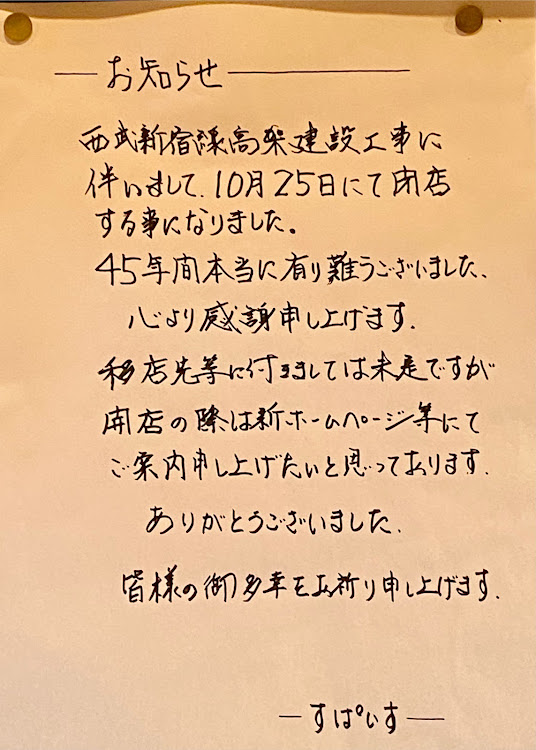 お知らせ
西武新宿線高架建設工事に
伴いまして、10月25日にて閉店
する事になりました。
45年間本当に有り難うございました、
心より感謝申し上げます.
移店先等に付きましては未定ですが
開店の際は新ホームページ等にて
ご案内申し上げたいと思っております.
ありがとうございました.
皆様の御多幸をお祈り申し上げます.
ーすぱいすー